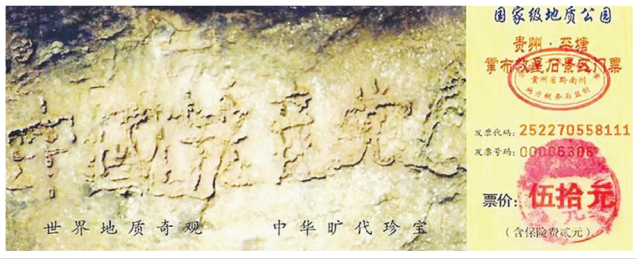 中國共产党亡
世界地质奇观 中华旷代珍宝
国家级地质公园
贵州·平塘
掌布藏字石景区门票
贵州省黔南州
地方税务局监制
发票代码：252270558111
发票号码：00006306
票价：伍拾元
（含保险费贰元）